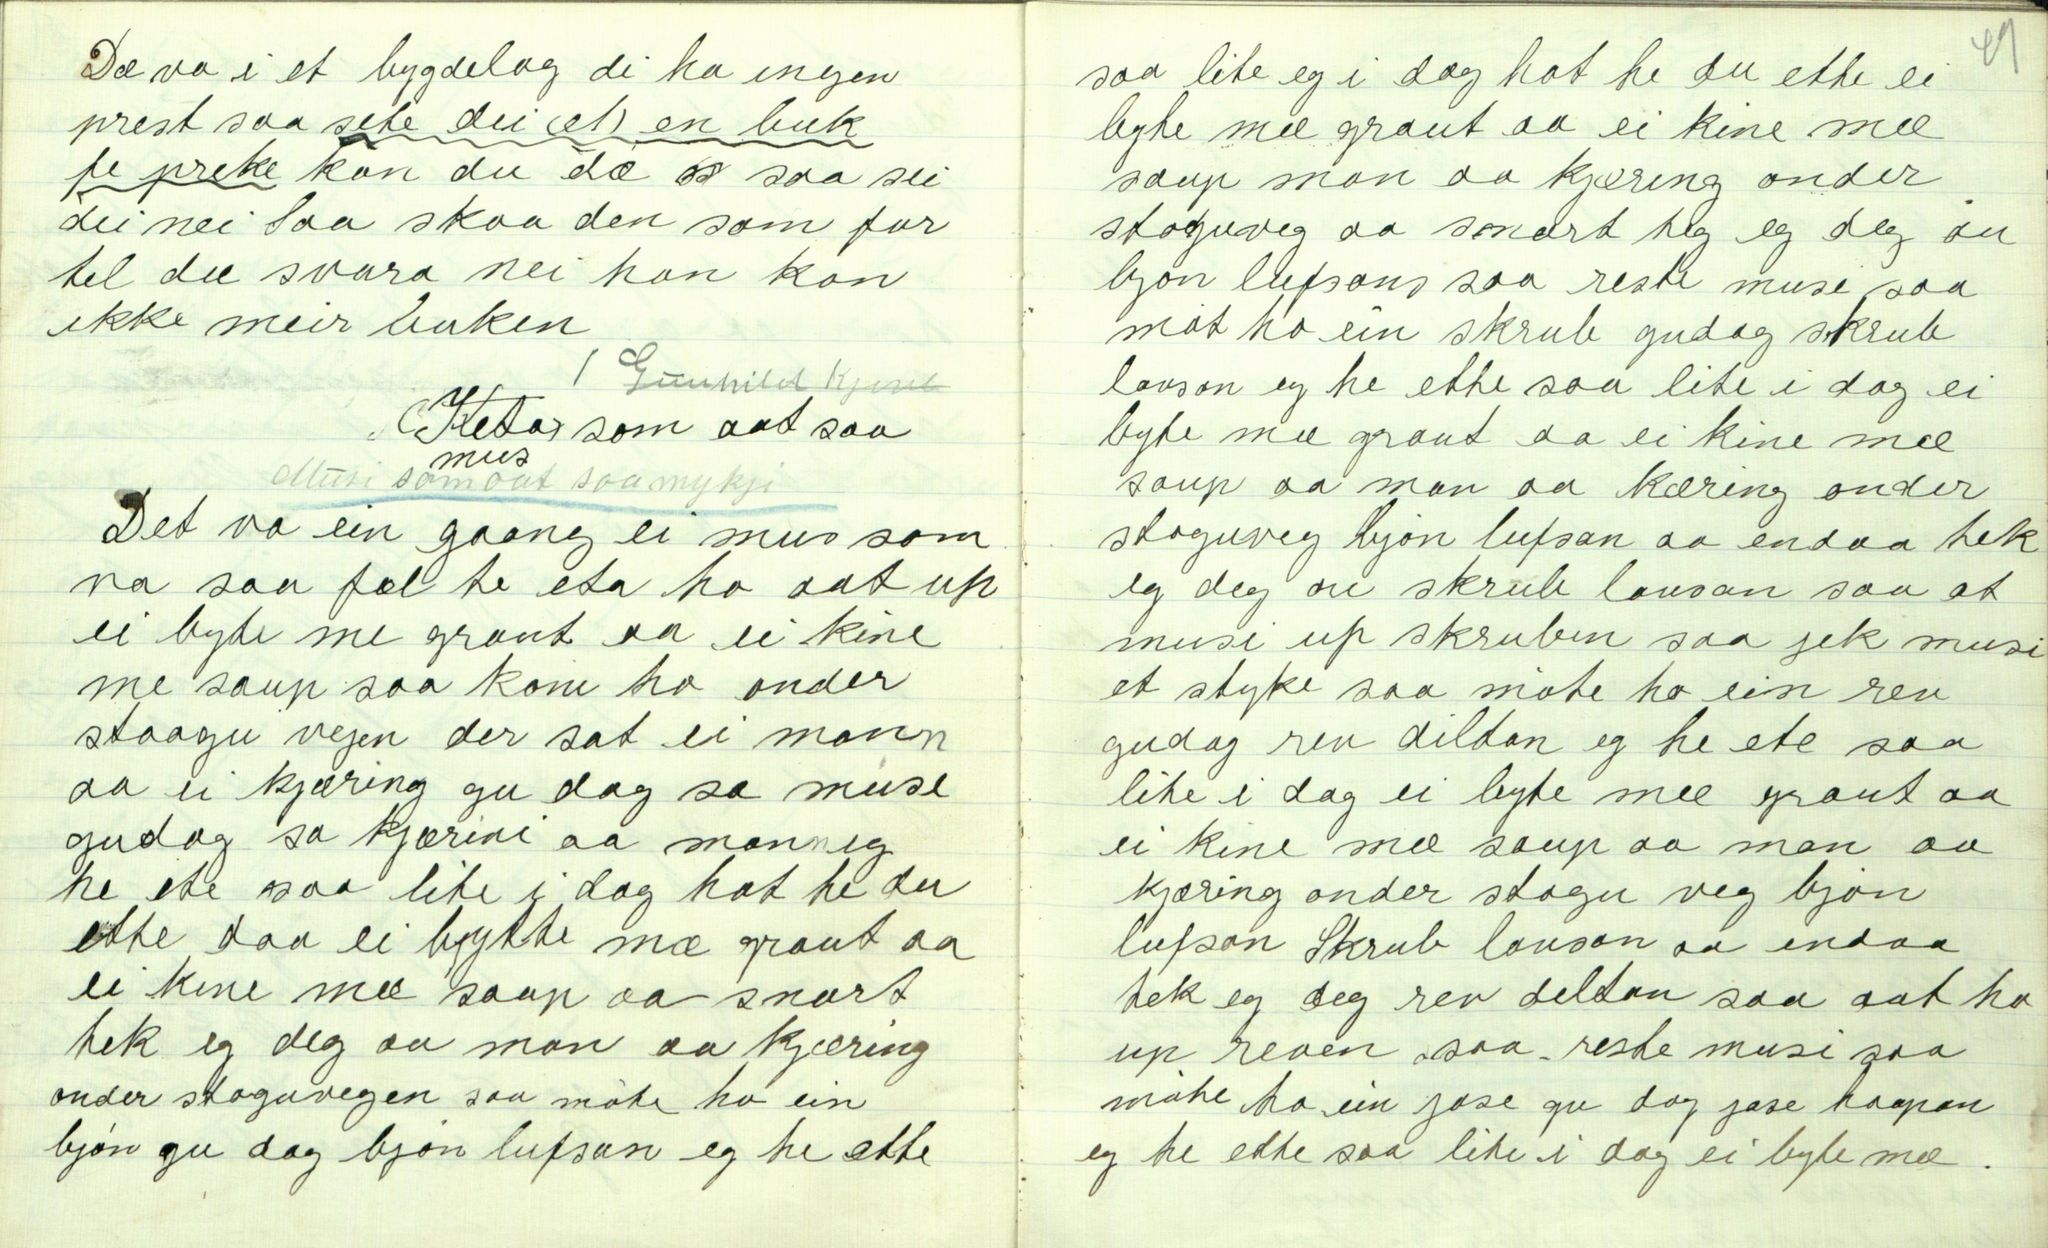 Dæ va i et bygdelag di ha ingen
prest saa sete dei (et) en buk
te preke kan du dæ saa sei
dei nei Saa skaa den som far
tel dæ svara nei han kan
ikke meir buken
/ Gunhild
Keta som aat saa
mus
Musi som aat saa mykji
Det va ein gaang ei mus som
va saa fæl te eta ho aat up
ei byte me graut aa ei kine
me saup saa kom ho onder
staagu vegen der sat ei mann
aa ei kjæring gu dag sa muse
gudag sa kjærini aa mann eg
he ete saa lite i dag hat he du
ette daa ei bytte mæ graut aa
ei kine mæ saup aa snart
tek eg deg aa man aa kjæring
onder staguvegen saa møte ho ein
bjøn gu dag bjøn lufsan eg he ette
49
saa lite eg i dag hat he du ette ei
byte mæ graut aa ei kine mæ
saup man aa kjæring onder
staguveg aa snart teg eg deg au
bjøn lufsans saa reste muse saa
møt ho ein skrub gudag skrub
lavson eg he ette saa lite i dag ei
byte mæ graut aa ei kine mæ
saup aa man aa kæring onder
staguveg bjøn lufsan aa endaa tek
eg deg au skrub lousan saa at
musi up skruben saa jek musi
et styke saa møte ho ein rev
gudag rev diltan eg he ete saa
lite i dag ei byte mæ graut aa
ei kine mæ saup aa man aa
kjæring onder stagu veg bjøn
lufsan Skrub lousan aa endaa
tek eg deg rev deltan saa aat ho
up reven saa reste musi saa
møte ho ein jase gu dag jase haapan
eg he ette saa lite i dag ei byte mæ